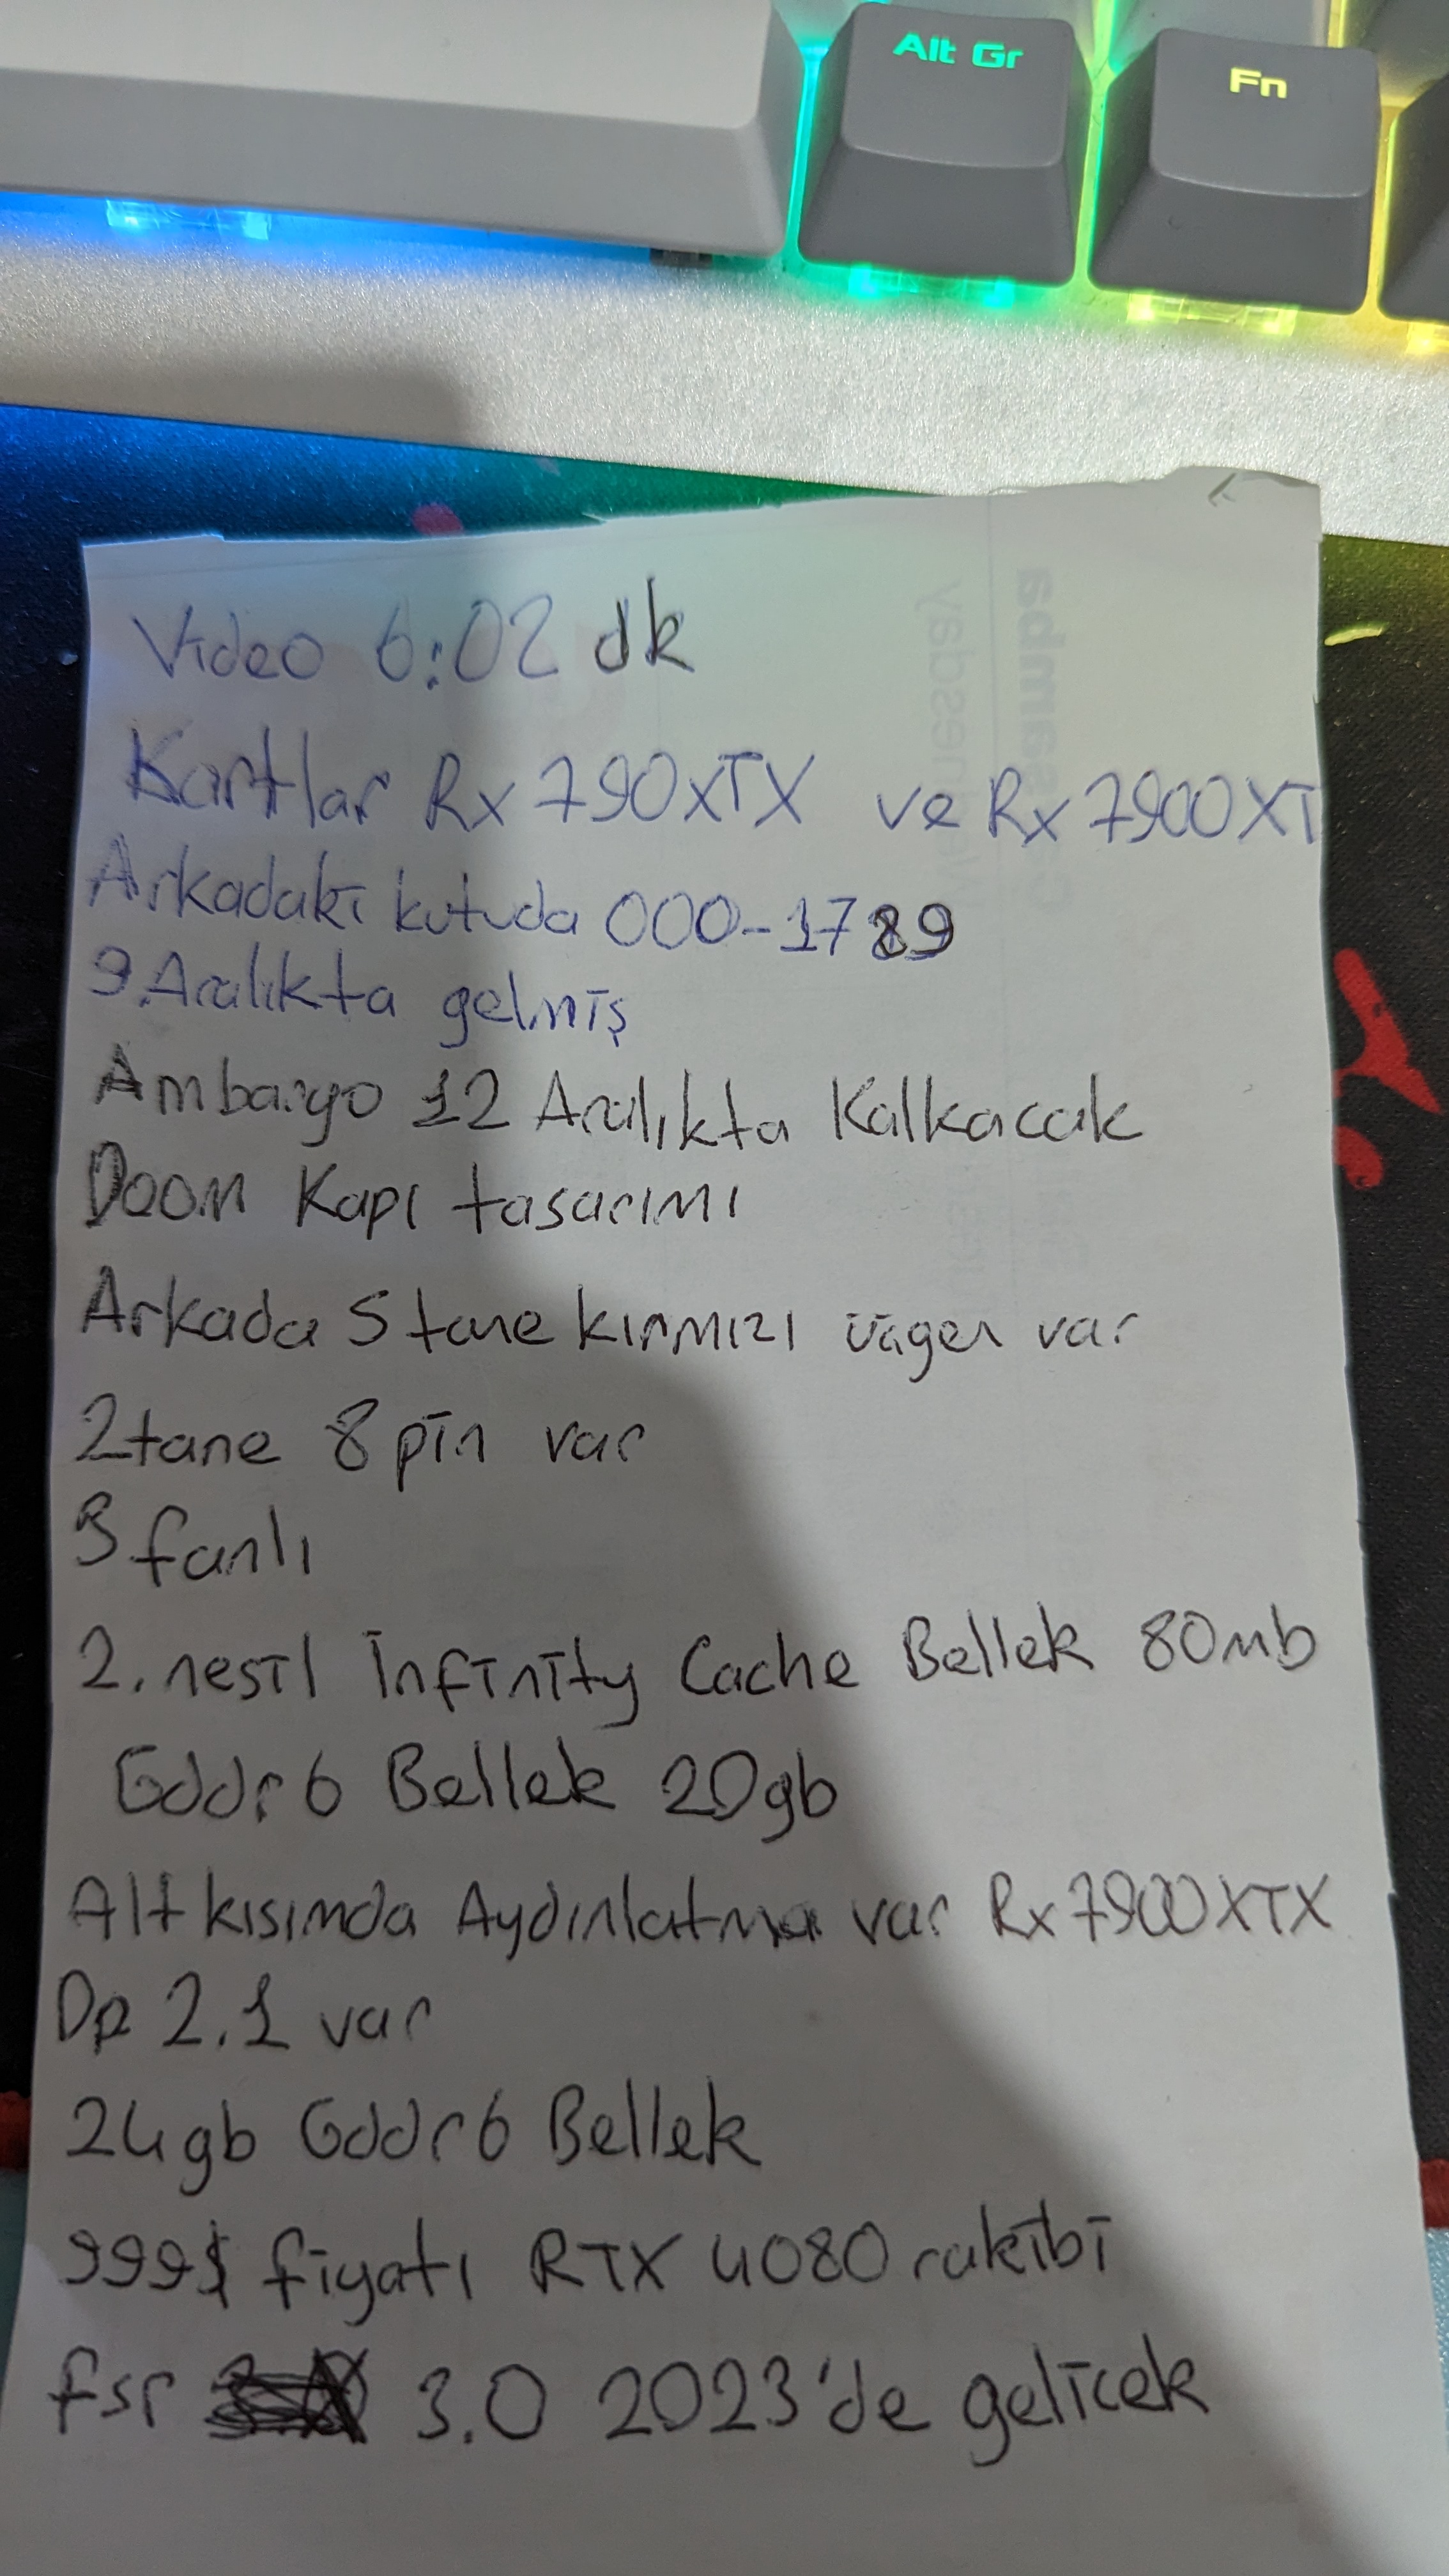 Alt Gr
Fn
Çarşamba
Wednesday
Video 6:02 dk
Kartlar Rx 790XTX ve Rx 7900XT
Arkadaki kutuda 000-1789
9.Aralıkta gelmiş
Ambargo 12 Aralıkta Kalkacak
Doom Kapı tasarımı
Arkada 5 tane kırmızı üçgen var
2tane 8 pin var
3 fanlı
2. nesil İnfinity Cache Bellek 80mb
Gddr6 Bellek 20gb
Alt kısımda Aydınlatma var Rx 7900XTX
Dp 2.1 var
24gb Gddr6 Bellek
999$ fiyatı RTX 4080 rakibi
fsr 3.0 2023'de gelicek